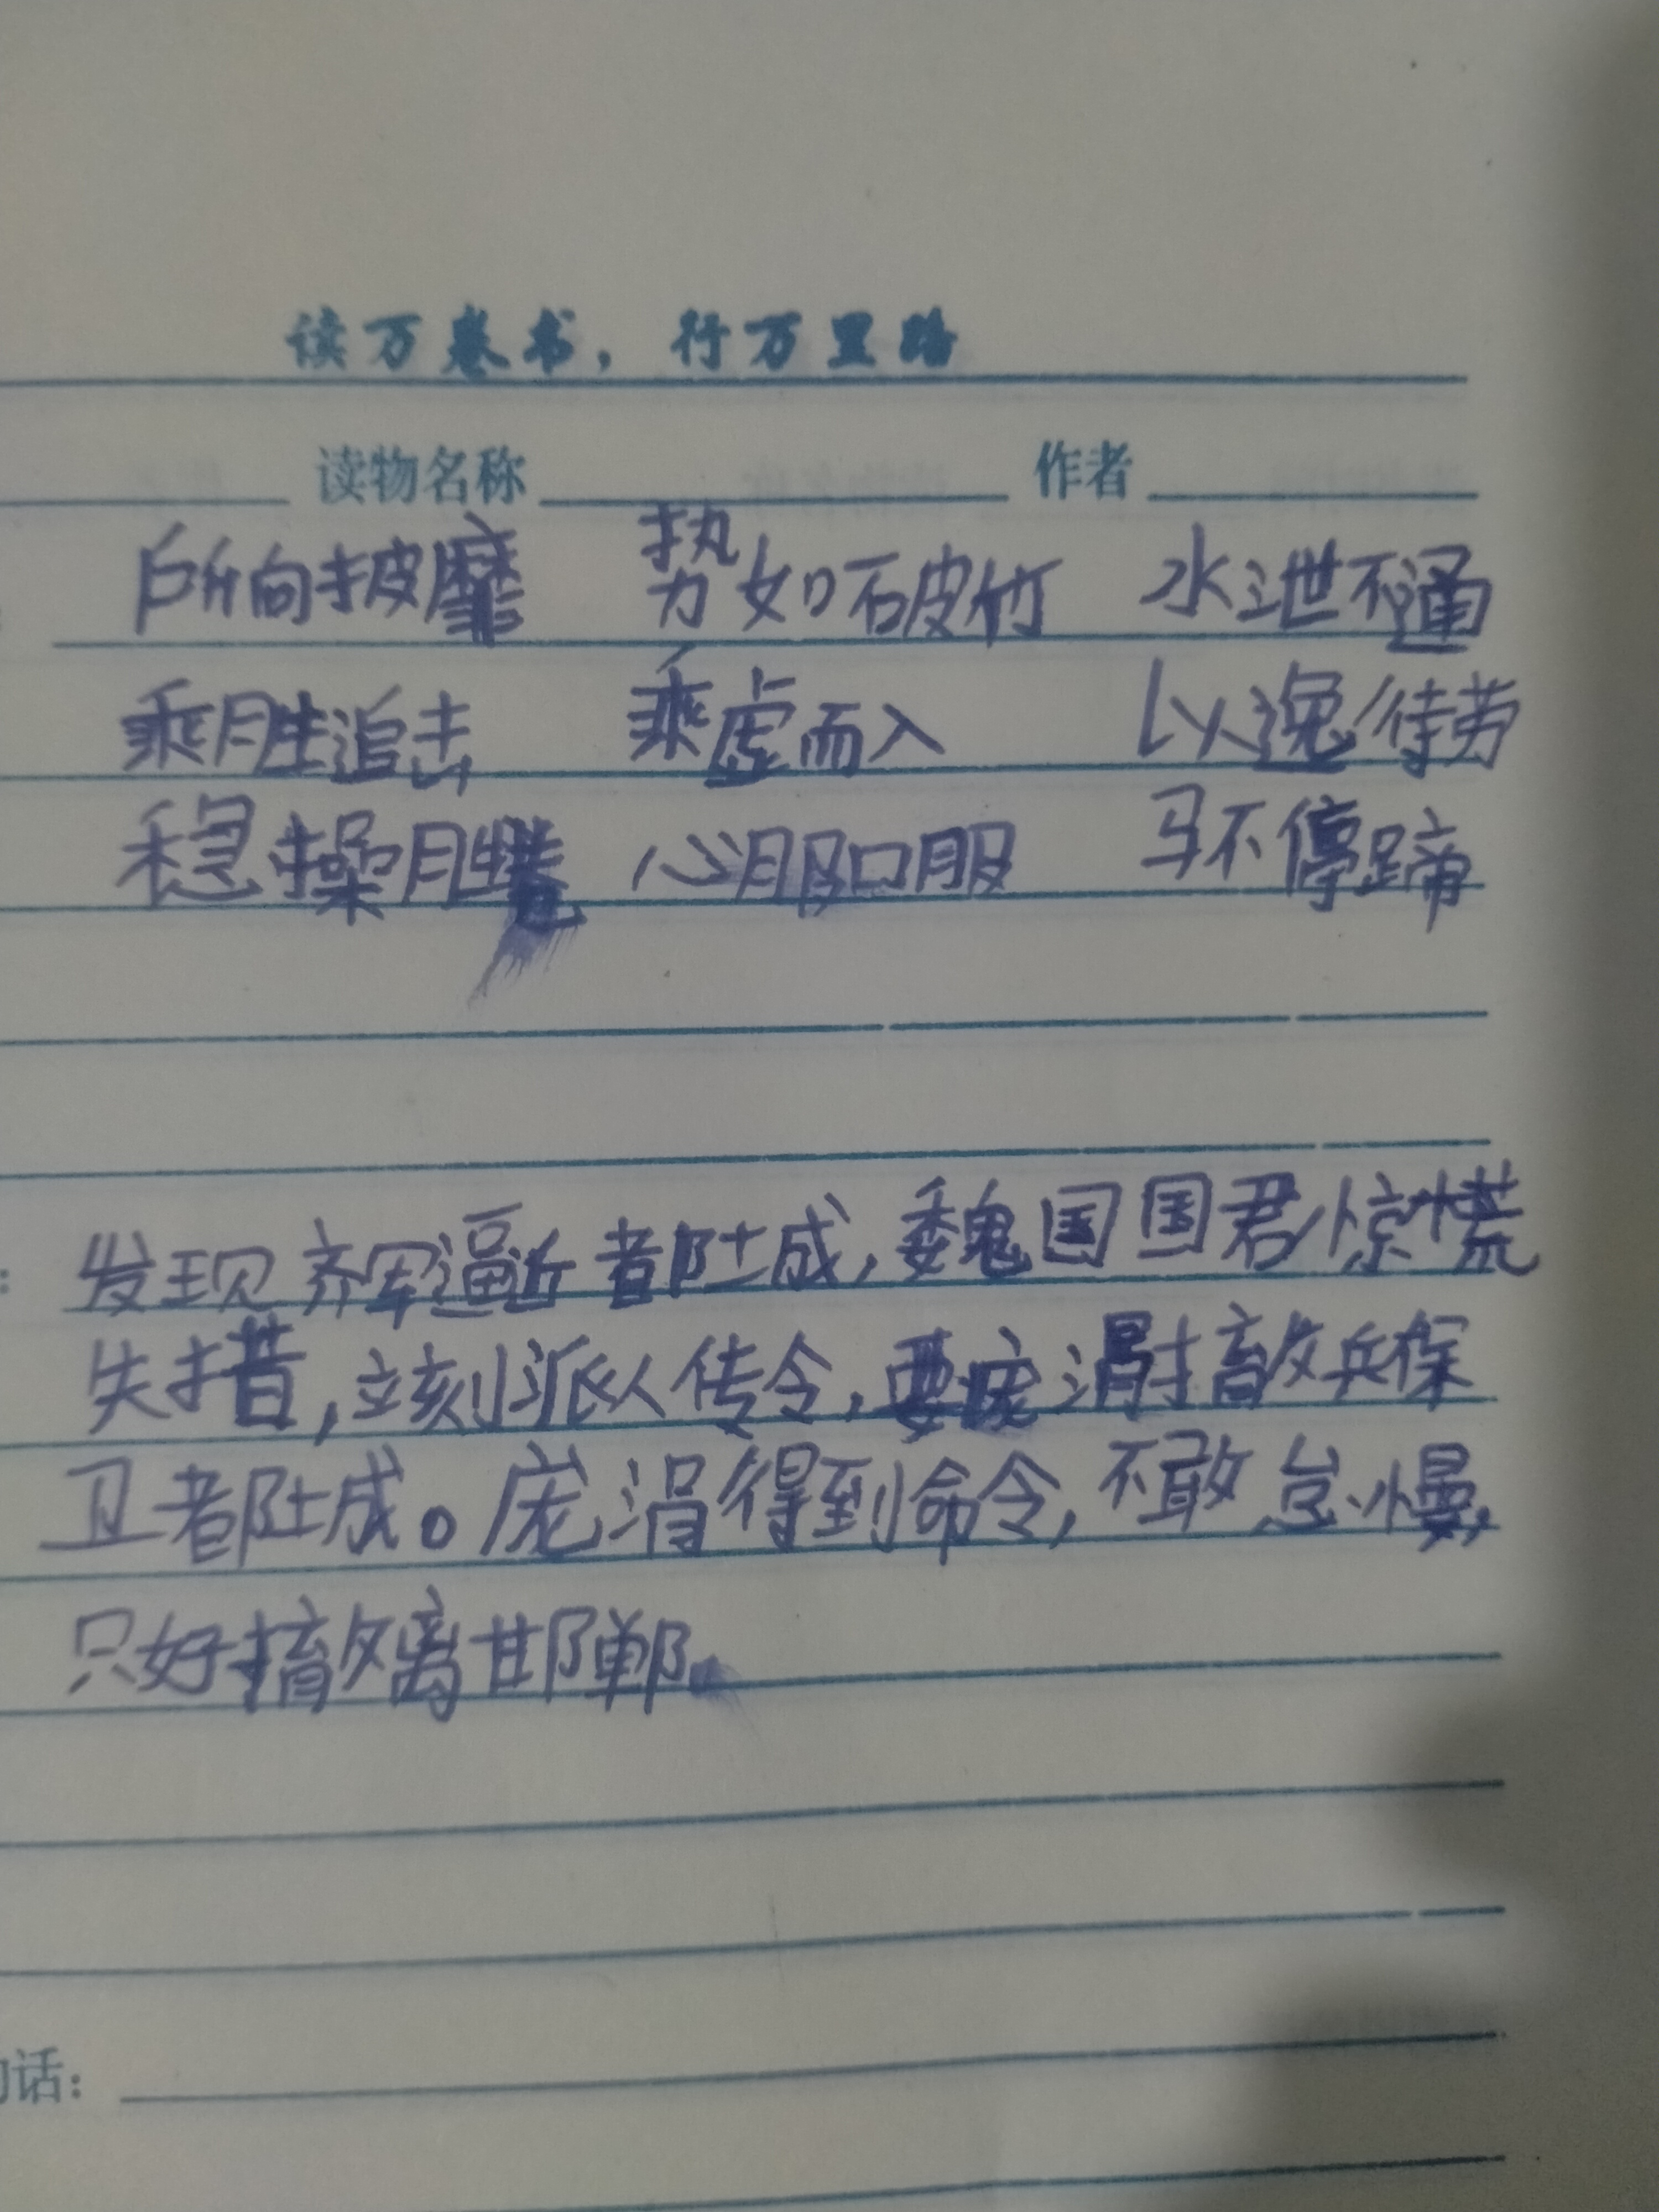 读万卷书，行万里路
读物名称 作者
所向披靡 势如破竹 水泄不通
乘胜追击 乘虚而入 以逸待劳
稳操胜券 心服口服 马不停蹄
发现齐军逼近都城，魏国国君惊慌
失措，立刻派人传令，要庞涓撤兵保
卫都城。庞涓得到命令，不敢怠慢，
只好撤离邯郸。
话：